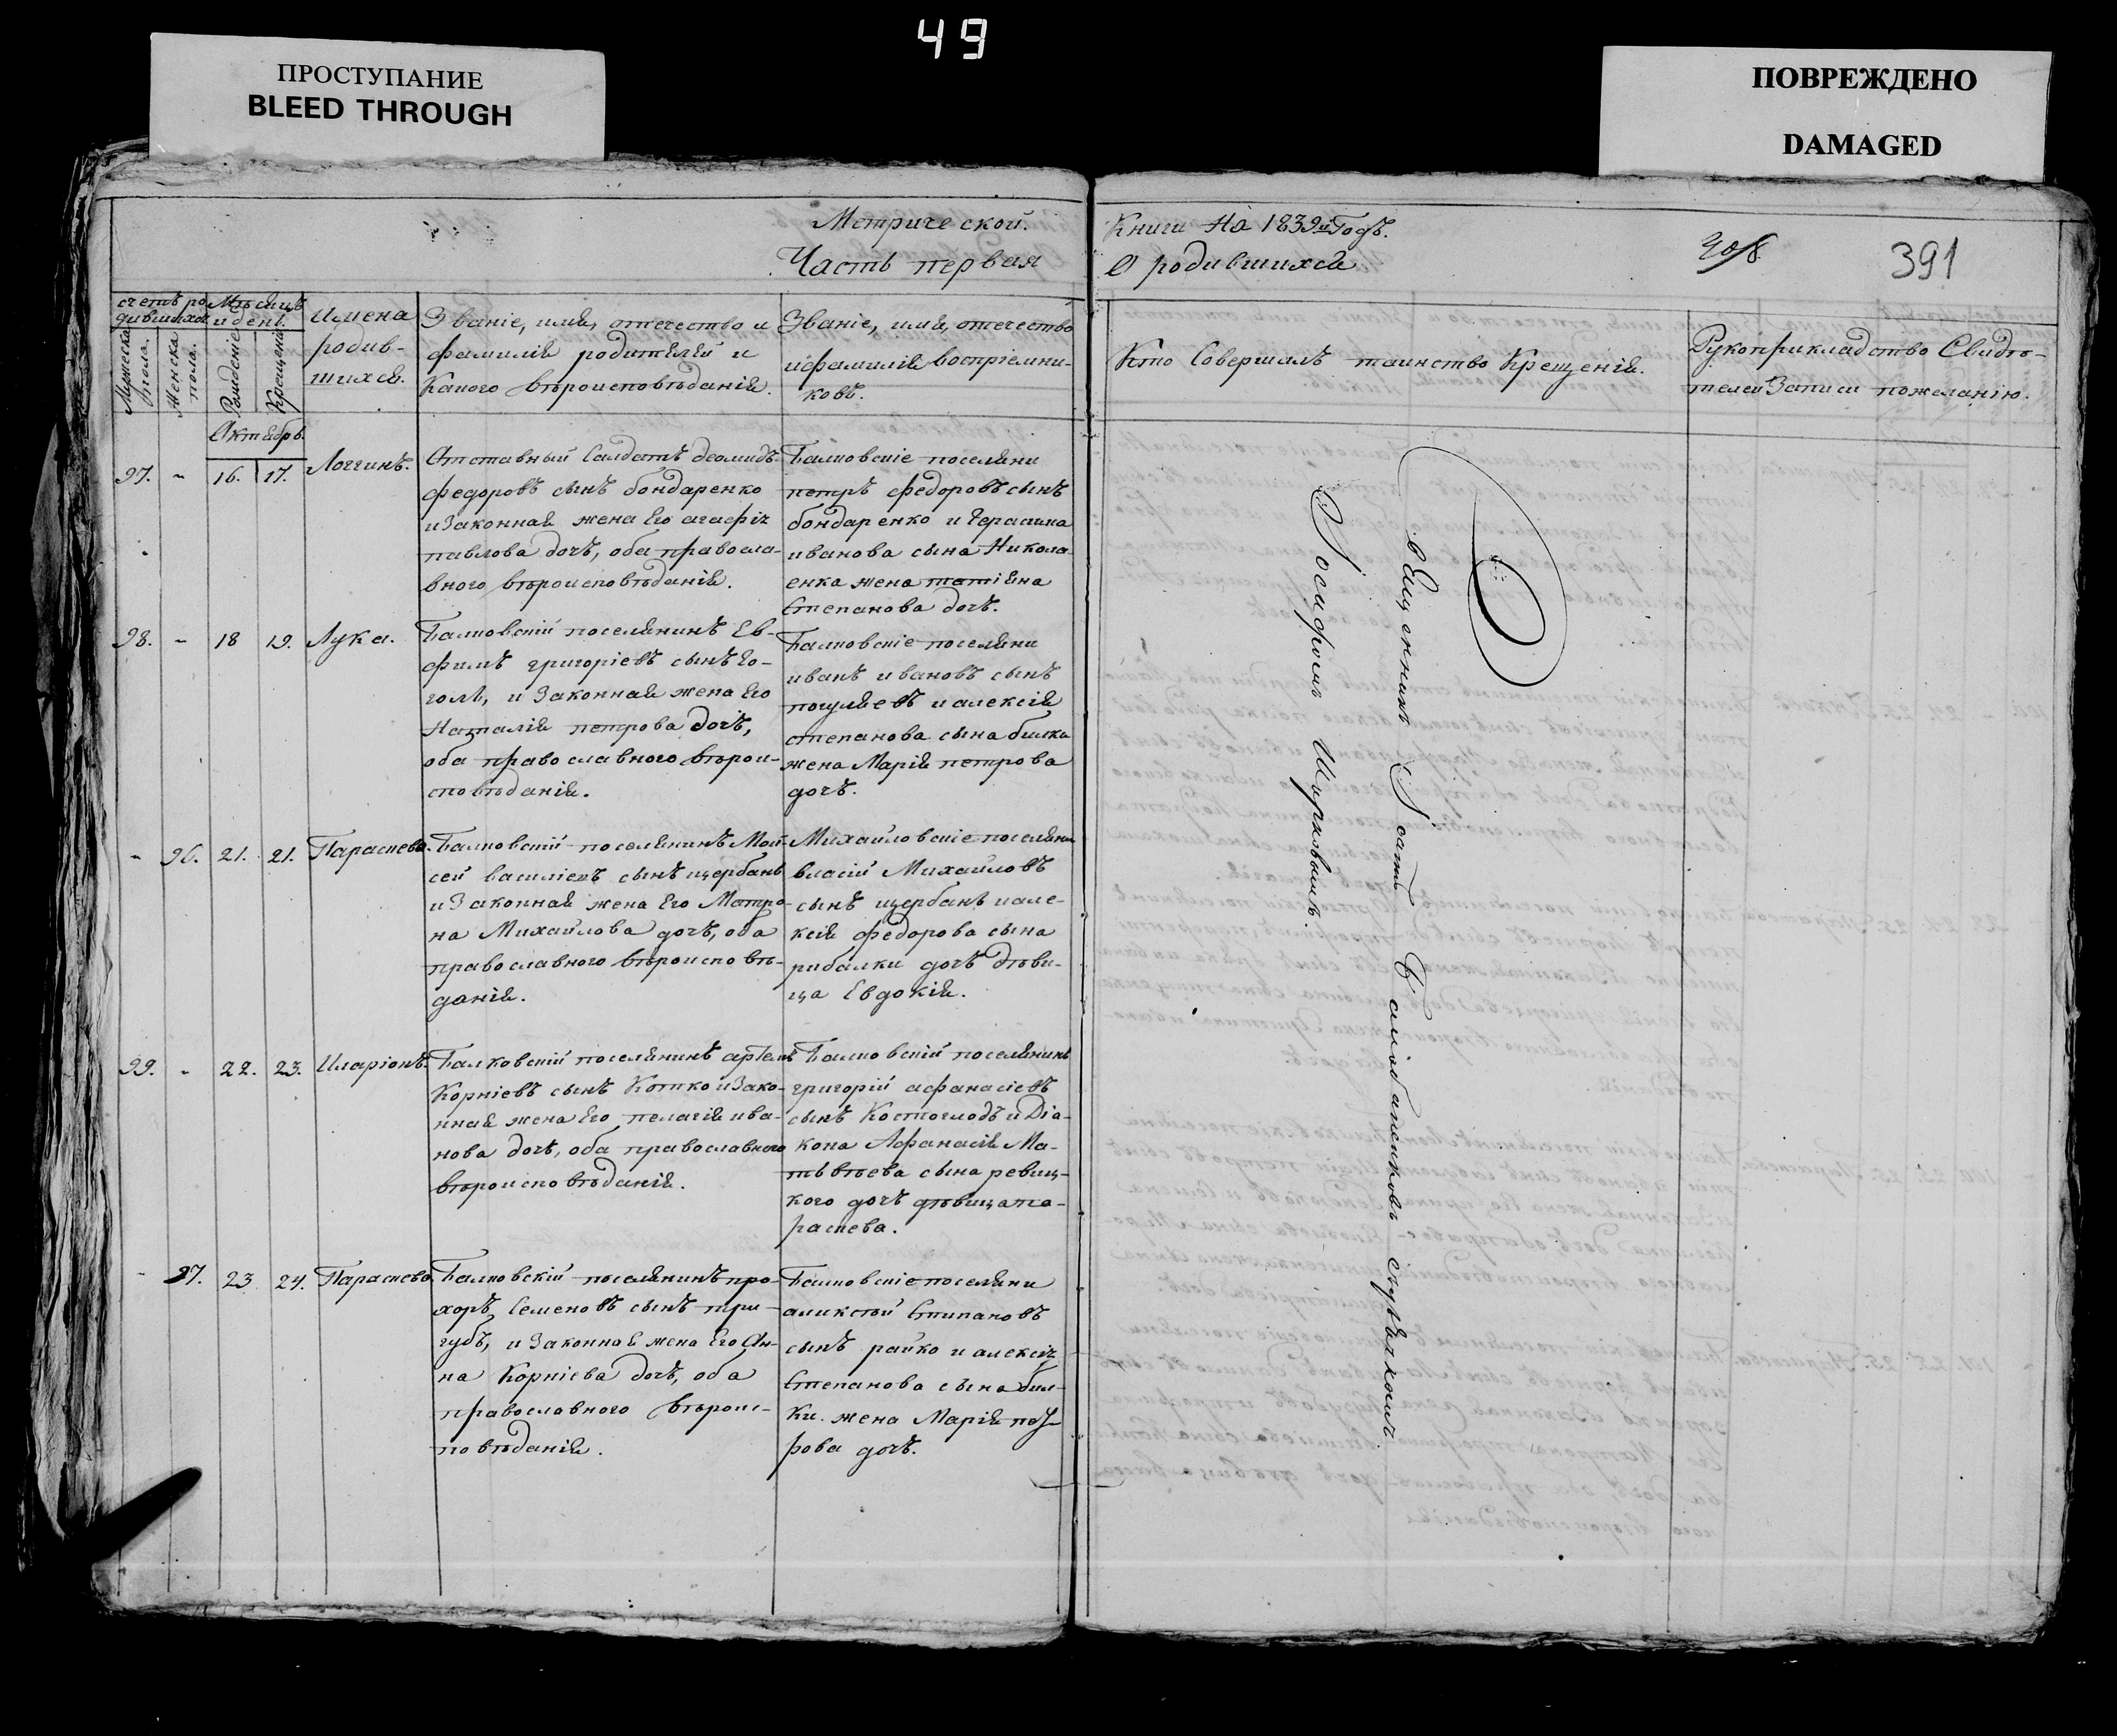 49
ПРОСТУПАНИЕ
BLEED THROUGH
ПОВРЕЖДЕНО
DAMAGED
Метрической
Книги на 1839й Годъ.
Часть первая
О родившихся
391
счетъ ро
дившихся
Мужеска
пола.
Женска
пола.
Мѣсяцъ
и день.
Рожденіе
Крещеніе
Имена
родив-
шихся.
Званіе, имя, отечество и
фамилія родителей и
Какого вѣроисповѣданія.
Званіе, имя, отечество
и фамилія воспріемни-
ковъ.
Кто Совершалъ таинство Крещенія.
Рукоприкладство Свидѣ-
телей Записи пожеланію.
Октябрь.
97. - 16. 17. Логгинъ.
Отставный Салдатъ деомидъ
федоровъ сынъ бондаренко
и Законная жена Его агафія
павлова дочъ, оба правосла-
вного вѣроисповѣданія.
Балковскіе поселяни
петръ федоровъ сынъ
бондаренко и Герасима
иванова сына Никола-
енка жена татіяна
Степанова дочъ.
98. - 18 19. Лука.
Балковскій поселянинъ Ев-
фимъ григоріевъ сынъ Го-
голь, и Законная жена Его
Наталія петрова дочъ,
оба православного вѣрои-
сповѣданія.
Балковскіе поселяни
иванъ ивановъ сынъ
и алексія
степанова сына билки
жена Марія петрова
дочъ.
- 96. 21. 21. Параскева.
Балковскій поселянинъ Мой-
сей василіевъ сынъ щербанъ
и Законная жена Его Матро-
на Михайлова дочъ, оба
православного вѣроисповѣ-
данія.
Михайловскіе поселяни
власій Михайловъ
сынъ щербанъ и але-
ксія федорова сына
рибалки дочъ дѣви-
ца Евдокія.
99. - 22. 23. Иларіонъ.
Балковскій поселянинъ артемъ
Корніевъ сынъ Котко и Зако-
нная жена Его пелагія ива-
нова дочъ, оба православного
вѣроисповѣданія.
Балковскій поселянинъ
григорій афанасіевъ
сынъ Костоглодъ и Діа-
кона Афанасія Ма-
твѣева сына ревиц-
кого дочъ дѣвица па-
раскева.
- 97. 23 24. Параскева
Балковскій поселянинъ про-
хоръ Семеновъ сынъ три-
губъ, и Законная жена Его Ан-
на Корніева дочъ, оба
православного вѣроис-
повѣданія.
Балковскіе поселяни
Стипановъ
сынъ райко и алексія
Степанова сына бил-
ки жена Марія пет-
рова дочъ.
Священникъ
Іосифомъ